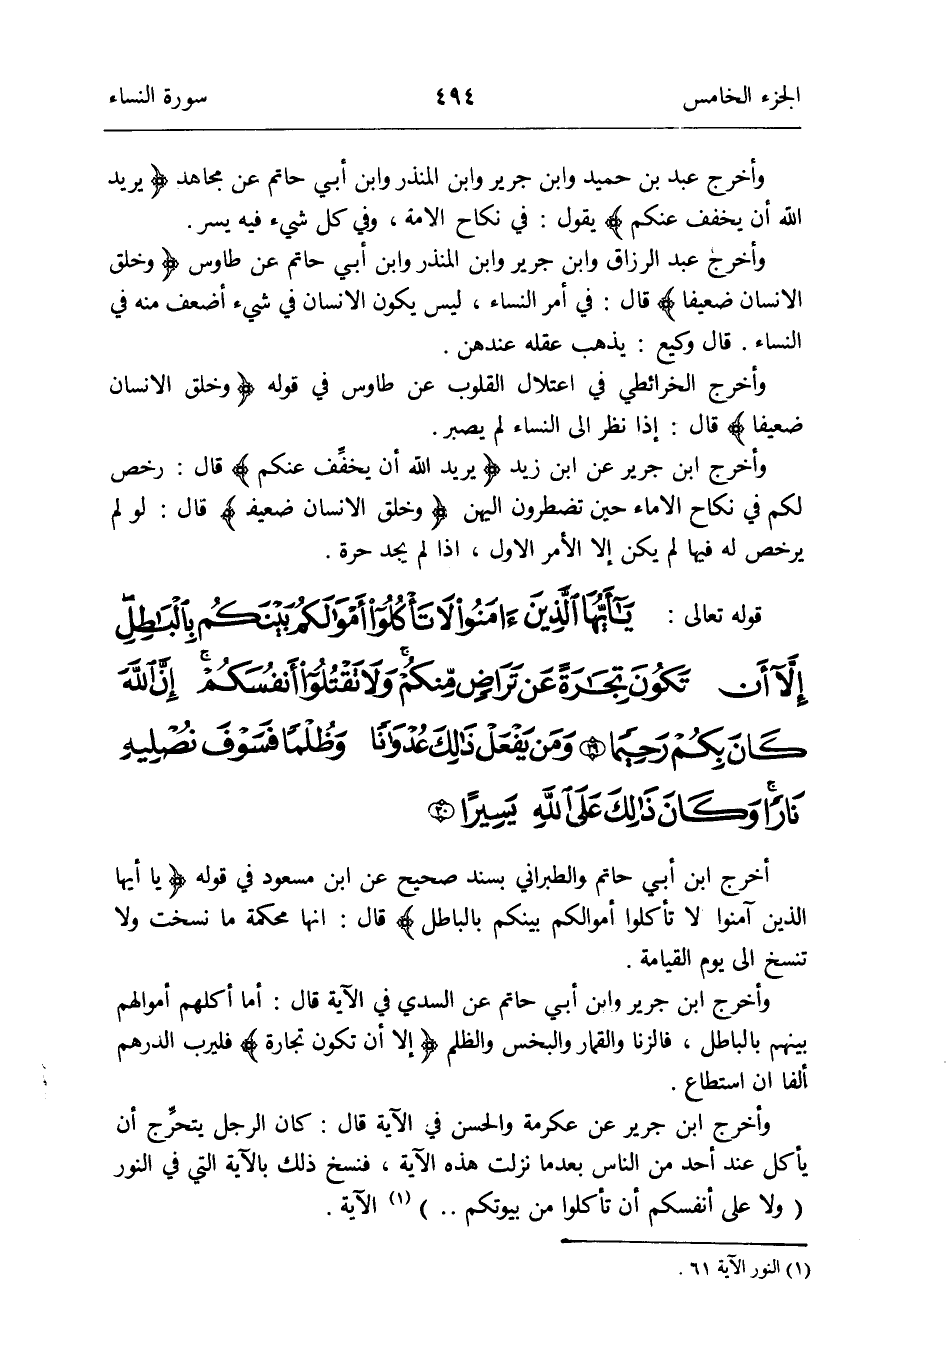 الجزء الخامس ٤٩٤ سورة النساء
وأخرج عبد بن حميد وابن جرير وابن المنذر وابن أبي حاتم عن مجاهد ﴿ يريد
الله أن يخفف عنكم ﴾ يقول : في نكاح الامة ، وفي كل شيء فيه يسر .
وأخرج عبد الرزاق وابن جرير وابن المنذر وابن أبي حاتم عن طاوس ﴿ وخلق
الانسان ضعيفا ﴾ قال : في أمر النساء ، ليس يكون الانسان في شيء أضعف منه في
النساء . قال وكيع : يذهب عقله عندهن .
وأخرج الخرائطي في اعتلال القلوب عن طاوس في قوله ﴿ وخلق الانسان
ضعيفا ﴾ قال : إذا نظر الى النساء لم يصبر .
وأخرج ابن جرير عن ابن زيد ﴿ يريد الله أن يخفِّف عنكم ﴾ قال : رخص
لكم في نكاح الاماء حين تضطرون اليهن ﴿ وخلق الانسان ضعيف ﴾ قال : لو لم
يرخص له فيها لم يكن إلا الأمر الاول ، اذا لم يجد حرة .
قوله تعالى : يَٰٓأَيُّهَا ٱلَّذِينَ ءَامَنُوا۟ لَا تَأْكُلُوٓا۟ أَمْوَٰلَكُم بَيْنَكُم بِٱلْبَٰطِلِ
إِلَّآ أَن تَكُونَ تِجَٰرَةً عَن تَرَاضٍ مِّنكُمْ ۚ وَلَا تَقْتُلُوٓا۟ أَنفُسَكُمْ ۚ إِنَّ ٱللَّهَ
كَانَ بِكُمْ رَحِيمًا ﴿٢٩﴾ وَمَن يَفْعَلْ ذَٰلِكَ عُدْوَٰنًا وَظُلْمًا فَسَوْفَ نُصْلِيهِ
نَارًا ۚ وَكَانَ ذَٰلِكَ عَلَى ٱللَّهِ يَسِيرًا ﴿٣٠﴾
أخرج ابن أبي حاتم والطبراني بسند صحيح عن ابن مسعود في قوله ﴿ يا أيها
الذين آمنوا لا تأكلوا أموالكم بينكم بالباطل ﴾ قال : انها محكمة ما نسخت ولا
تنسخ الى يوم القيامة .
وأخرج ابن جرير وابن أبي حاتم عن السدي في الآية قال : أما أكلهم أموالهم
بينهم بالباطل ، فالزنا والقمار والبخس والظلم ﴿ إلا أن تكون تجارة ﴾ فليرب الدرهم
ألفا ان استطاع .
وأخرج ابن جرير عن عكرمة والحسن في الآية قال : كان الرجل يتحرَّج أن
يأكل عند أحد من الناس بعدما نزلت هذه الآية ، فنسخ ذلك بالآية التي في النور
( ولا على أنفسكم أن تأكلوا من بيوتكم .. ) (١) الآية .
(١) النور الآية ٦١ .